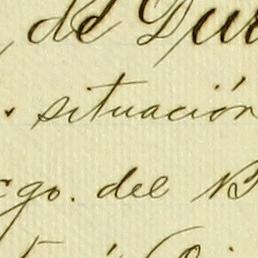 de Dur
situación
go. del B